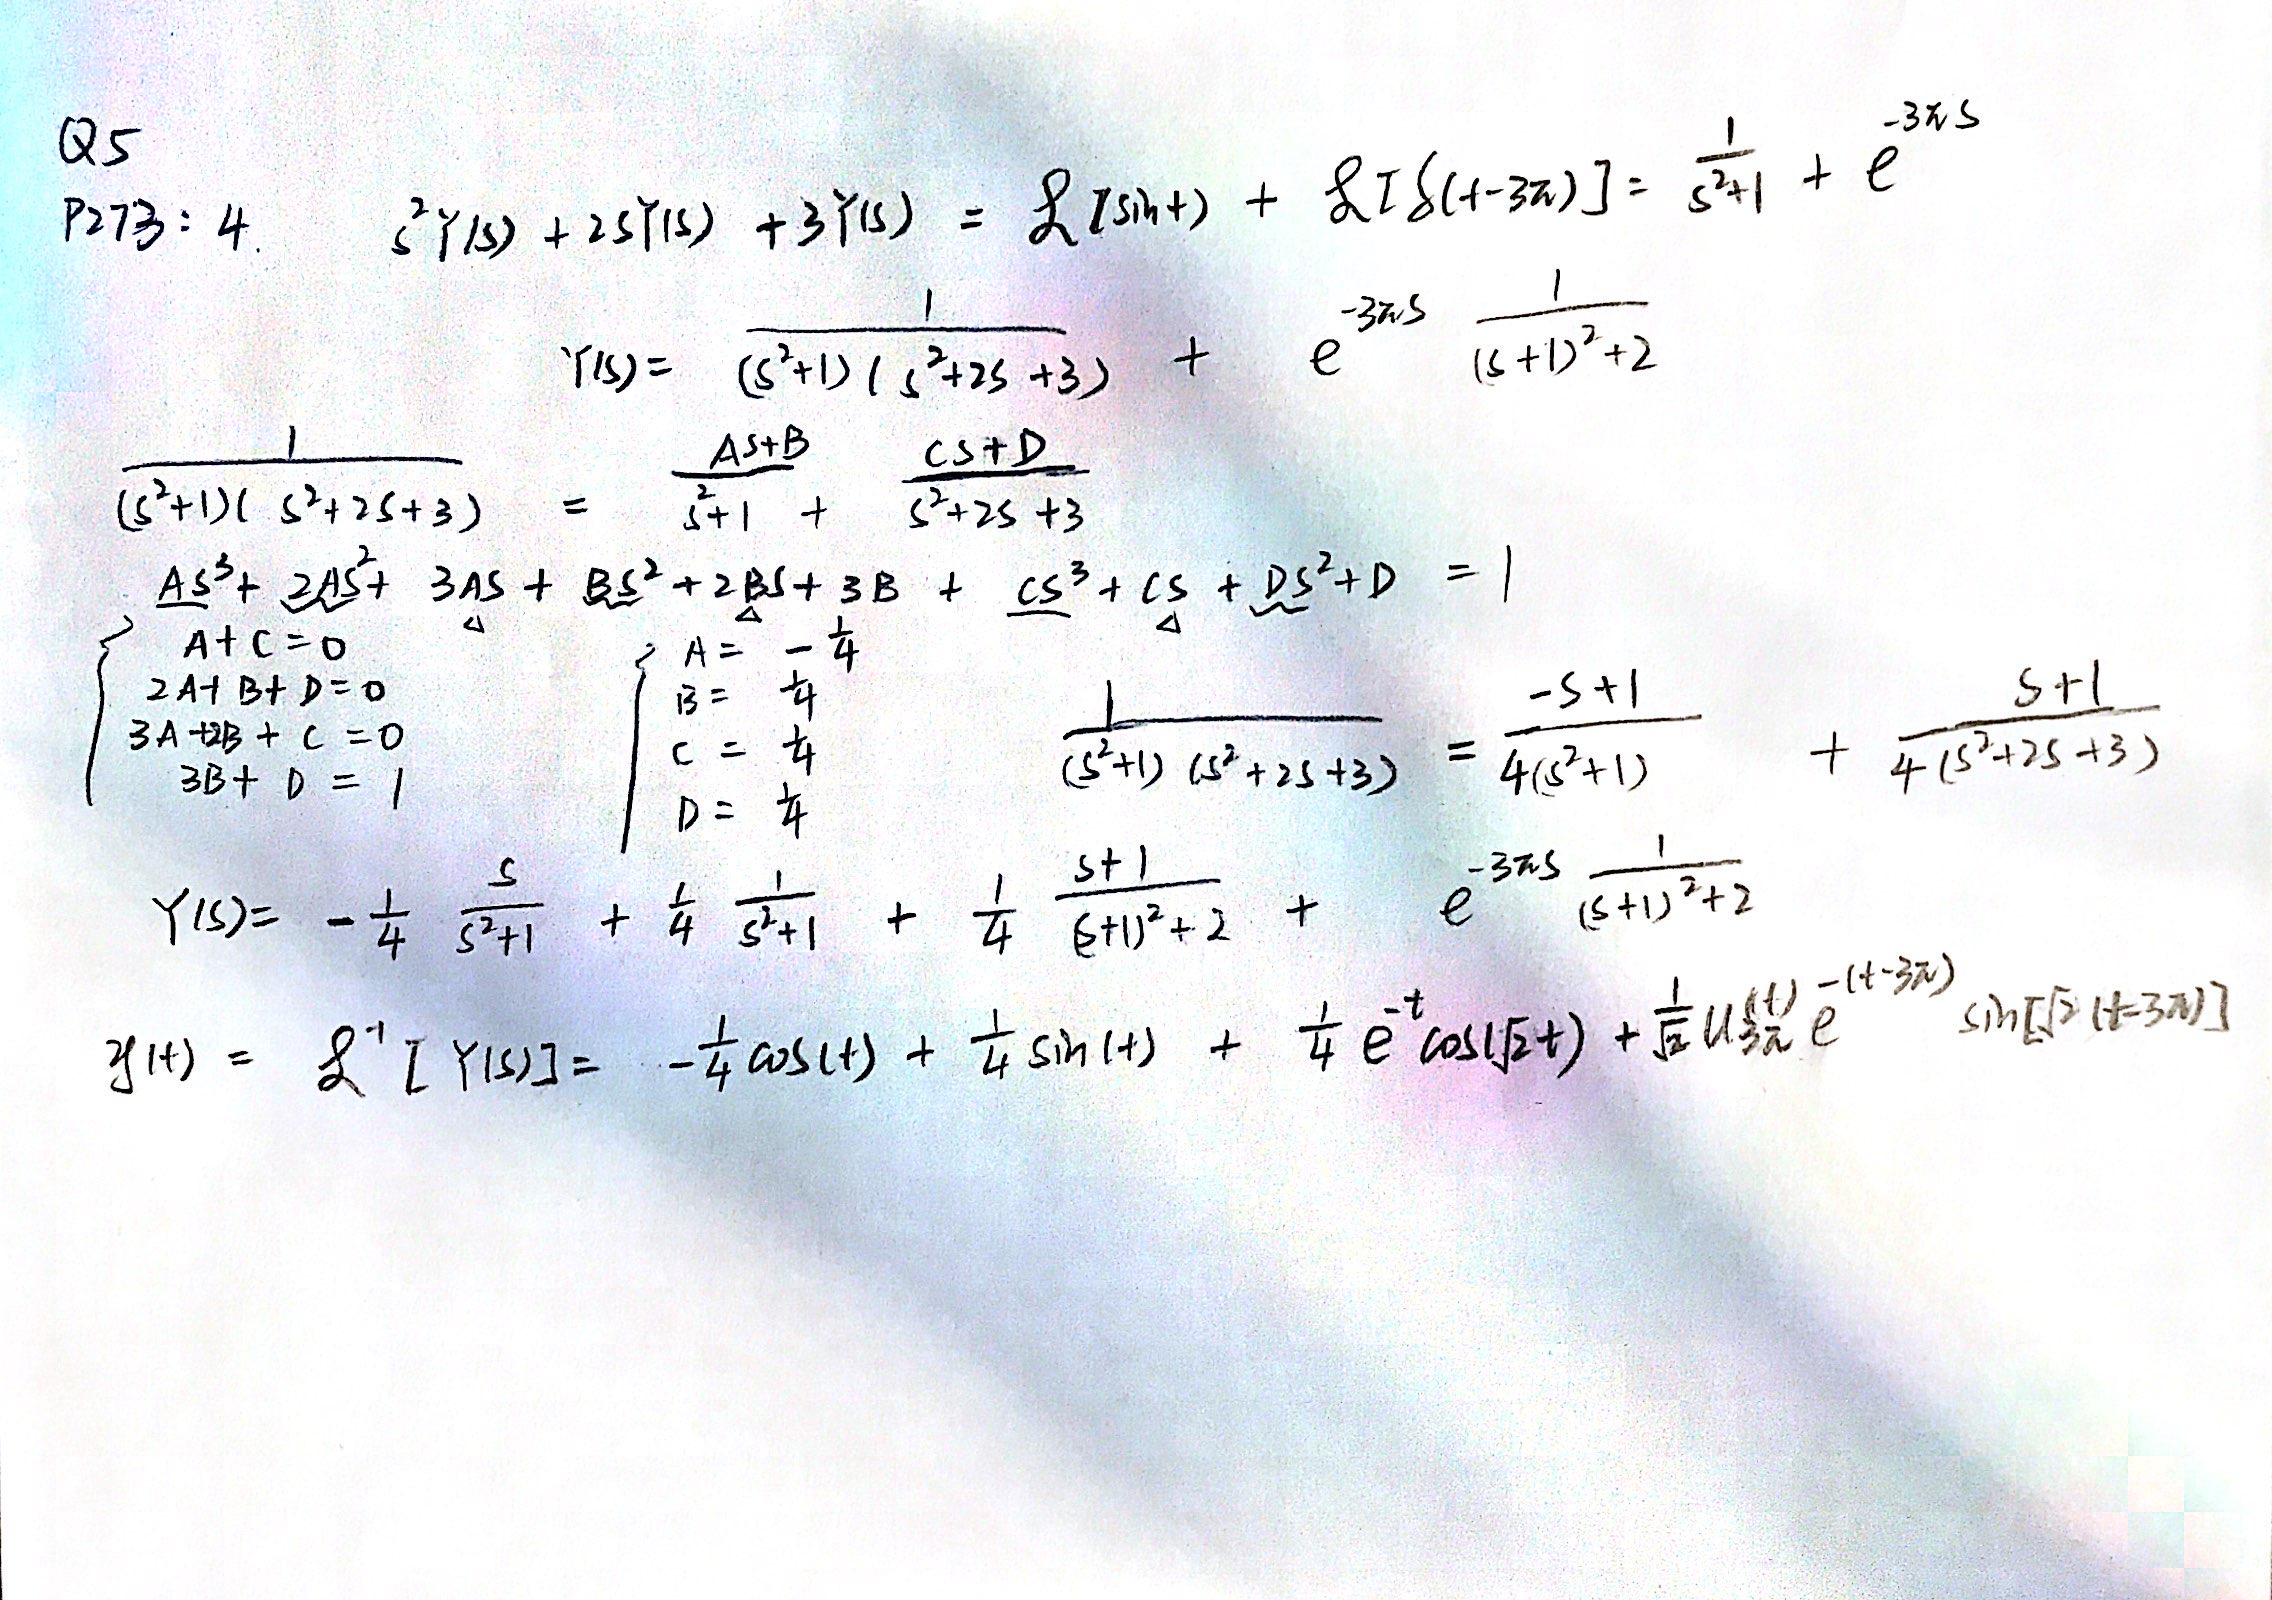 Q5
P273: 4. s²Y(s) + 2sY(s) + 3Y(s) = ℒ[sint) + ℒ[δ(t-3π)] = 1/(s²+1) + e^(-3πs)
Y(s) = 1/((s²+1)(s²+2s+3)) + e^(-3πs) 1/((s+1)²+2)
1/((s²+1)(s²+2s+3)) = (As+B)/(s²+1) + (Cs+D)/(s²+2s+3)
As³ + 2As² + 3As + Bs² + 2Bs + 3B + Cs³ + Cs + Ds² + D = 1
A + C = 0
2A + B + D = 0
3A + 2B + C = 0
3B + D = 1
A = -1/4
B = 1/4
C = 1/4
D = 1/4
1/((s²+1)(s²+2s+3)) = (-s+1)/(4(s²+1)) + (s+1)/(4(s²+2s+3))
Y(s) = -1/4 s/(s²+1) + 1/4 1/(s²+1) + 1/4 (s+1)/((s+1)²+2) + e^(-3πs) 1/((s+1)²+2)
y(t) = ℒ⁻¹[Y(s)] = -1/4 cos(t) + 1/4 sin(t) + 1/4 e^(-t) cos(√2t) + 1/√2 u_3π(t) e^(-(t-3π)) sin[√2(t-3π)]